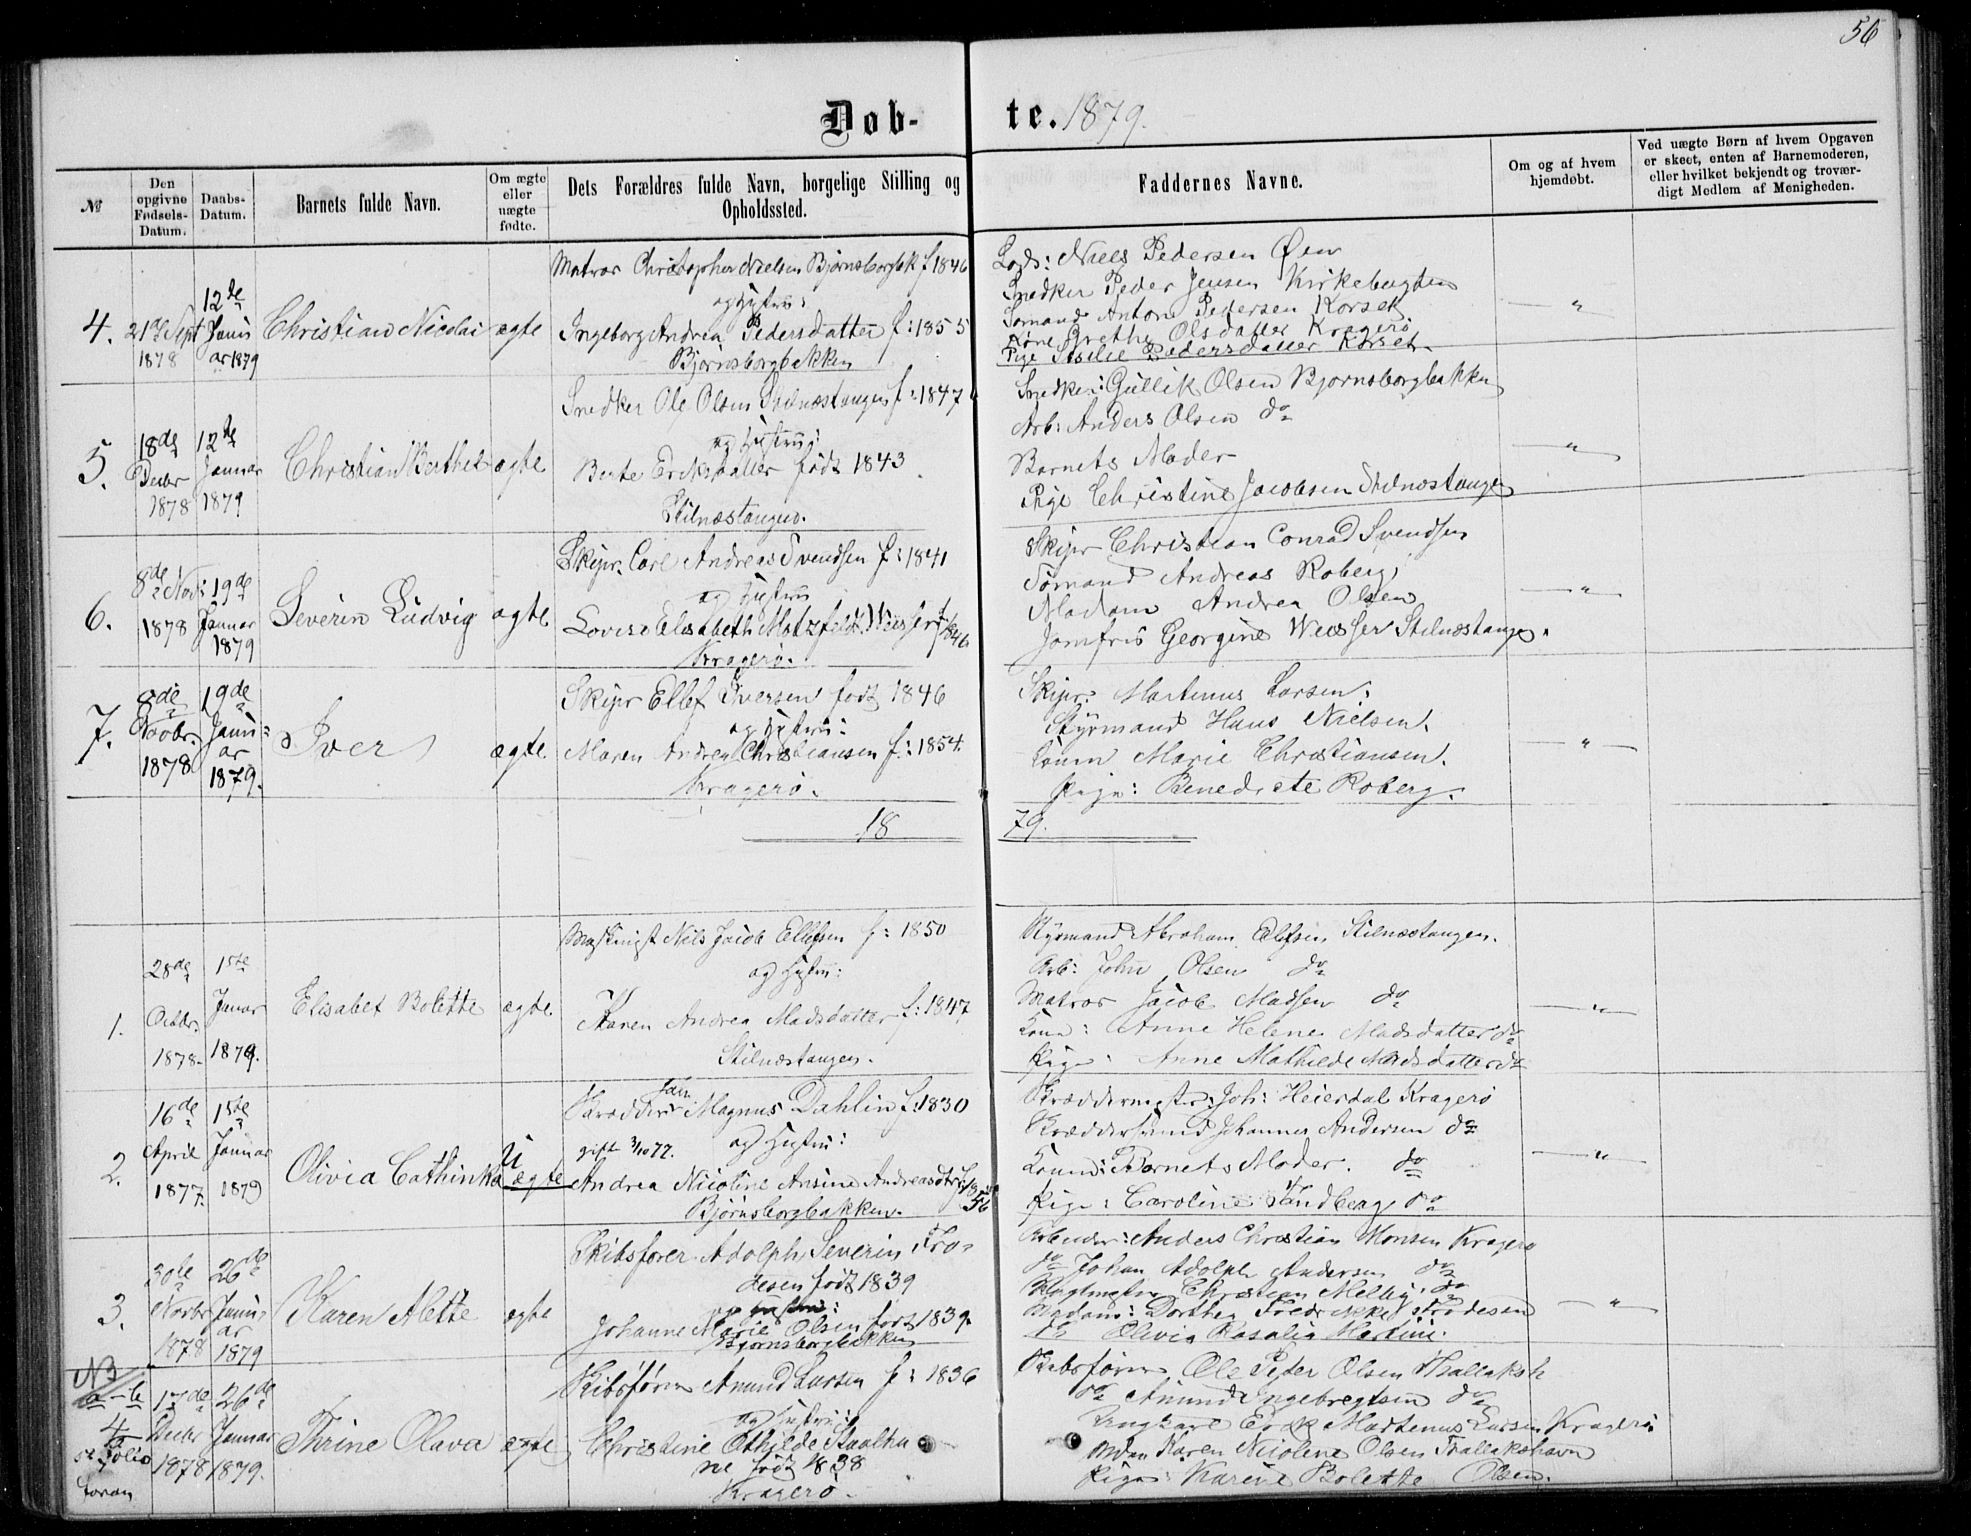 56
Døb- te. 1879.
№
Den opgivne Fødsels-Datum.
Daabs-Datum.
Barnets fulde Navn.
Om ægte eller uægte fødte.
Dets Forældres fulde Navn, borgelige Stilling og Opholdssted.
Faddernes Navne.
Om og af hvem hjemdøbt.
Ved uægte Børn af hvem Opgaven er skeet, enten af Barnemoderen, eller hvilket bekjendt og troværdigt Medlem af Menigheden.
4.
21de Sept 1878
12te Januar 1879
Christian Nicolai
ægte
Matros Christopher Nielsen Bjørnsborgbk f 1846
og Hustru:
Ingeborg Andrea Pedersdatter f: 1855
Bjørnsborgbakken
Lods: Niels Pedersen Øen
Snedker Peder Jensen Kirkebugten
Sømand Anton Pedersen Korset
Kone Grethe Olsdatter Kragerø
Pige Pedersdatter Korset
"
5.
18de Decbr 1878
12te Januar 1879
Christian Berthel
ægte
Snedker Ole Olsen Stilnæstangen f: 1847
og Hustru:
Berte Eriksdatter født 1843
Stilnæstangen.
Snedker: Gullik Olsen Bjørnsborgbakken
Arb: Anders Olsen do
Barnets Moder
Pige Christine Jacobsen Stilnæstangen
"
6.
8de Nov: 1878
19de Januar 1879
Severin Ludvig
ægte
Skipr. Carl Andreas Svendsen f: 1841
og Hustru
Lovise Elisabeth Weisser f 1846
Kragerø.
Skipr Christian Conrad Svendsen
Sømand Andreas Roberg,
Madam Andrea Olsen
Jomfru Georgine Weisser Stilnæstangen
"
7.
8de Novbr. 1878
19de Januar 1879.
Iver
ægte
Skipr Ellef Iversen født 1846
og Hustru:
Maren Andrea Christiansen f: 1854.
Kragerø.
Skipr. Martinus Larsen.
Styrmand Hans Nielsen.
Konen Marie Christiansen.
Pige: Benedicte Roberg.
"
18 79.
1.
28de Octbr. 1878.
1ste Januar 1879.
Elisabet Bolette
ægte
Maskinist Nils Jacob Ellefsen f: 1850
og Hustru:
Karen Andrea Madsdatter f: 1847
Stilnæstangen.
Styrmand Abraham Ellefsen Stilnæstangen.
Arb: John Olsen do
Matros Jacob Madsen do
Kone: Anne Helene Madsdatter do
Pige: Anne Mathilde Madsdatter do
"
2.
16de April 1877.
1ste Januar 1879
Olivia Cathinka
U ægte
Skrædder Magnus Dahlin f: 1830
gift 3/10 77. og Hustru:
Andrea Nicoline Ansine Andreasdtr f 1856
Bjørnsborgbakken.
Skræddermester: Joh: Heierdal Kragerø
Skræddersvend Johannes Andersen do
Konen: Barnets Moder. do
Pige: Caroline Sandberg do
"
3.
30te Novbr 1878
26de Januar 1879
Karen Alette
ægte
Skibsfører Adolph Severin Frodesen født 1839
og Hustru:
Johanne Marie Olsen født 1839.
Bjørnsborgbakken
Arbeider: Anders Christian Monsen Kragerø
do Johan Adolph Andersen do
Christian Melby. do
Madam: Dorthea Fredrikke Frodesen
do Olivia Rosalia Martini.
"
NB
a-b
4
se Folio foran
17de Decbr 1878
26de Januar 1879.
Thrine Olava
ægte
Skibsfører Amund Larsen f: 1836
og Hustru:
Christine Othilde
født 1838
Kragerø.
Skibsfører Ole Peter Olsen
do Amund Ingebregtsen do
Martinus Larsen Kragerø
Mdm Karen Nicoline Olsen
Pige: Karine Bolette Olsen.